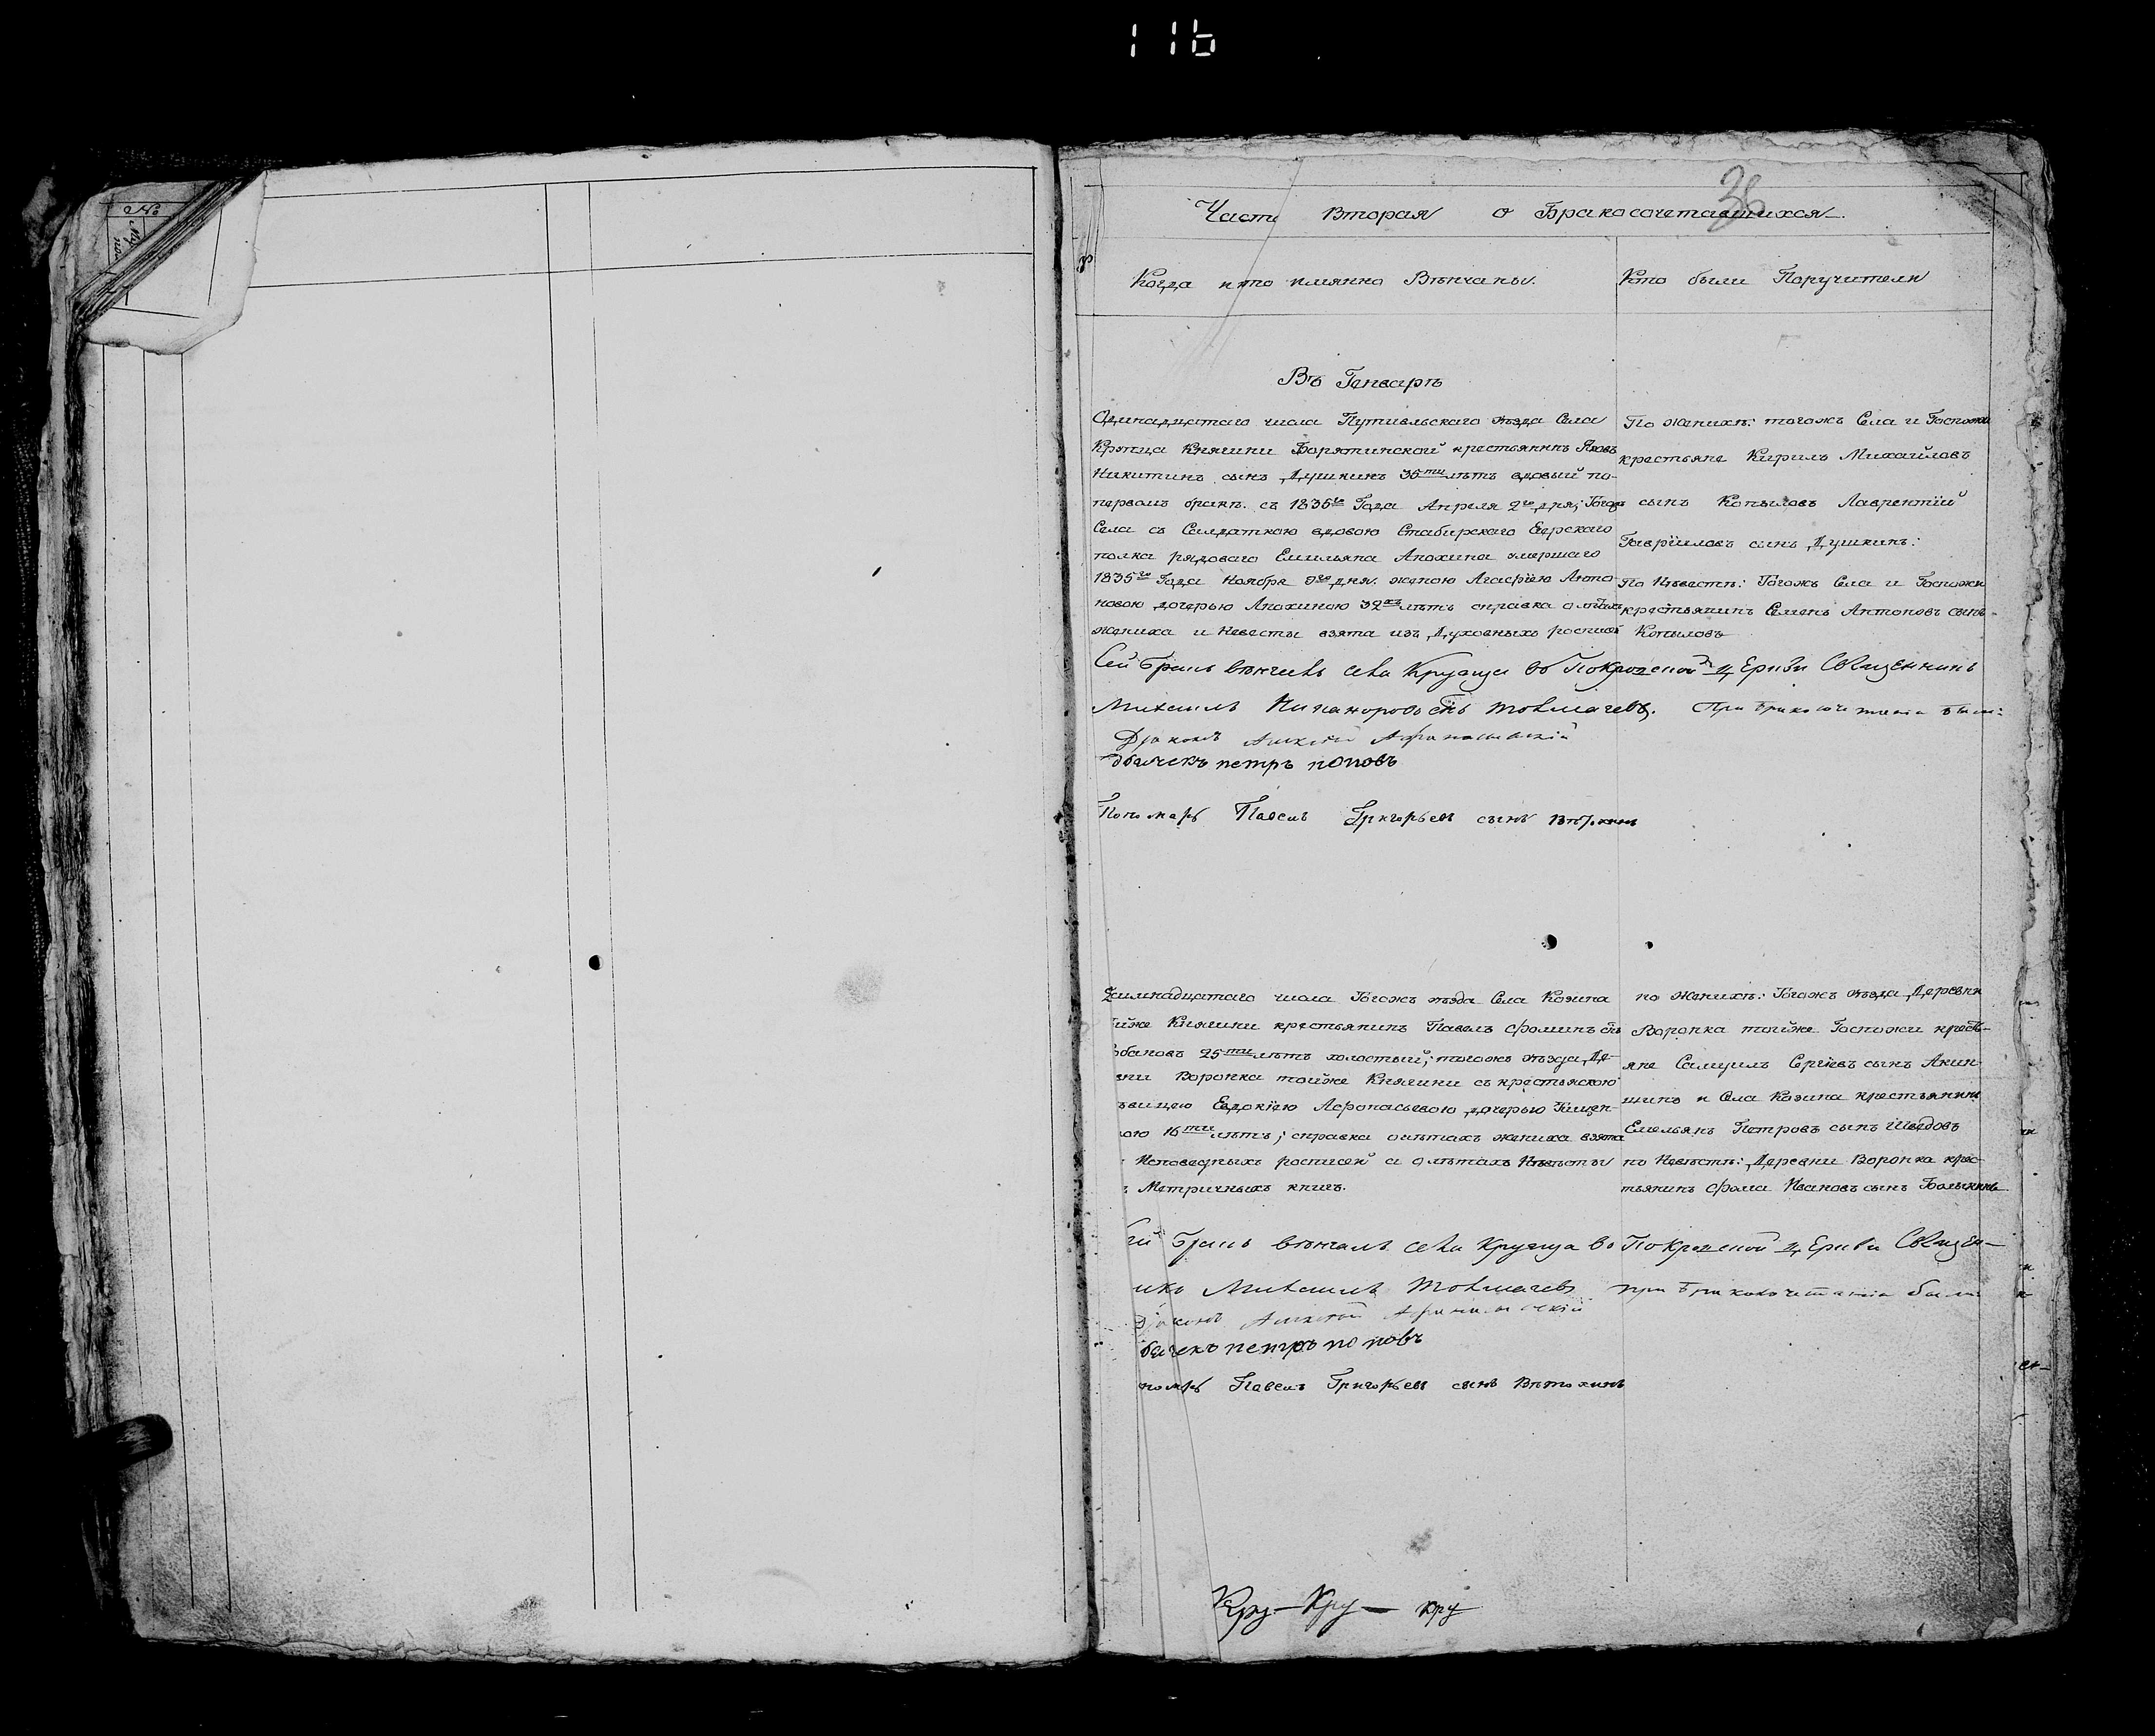 116
№
36
Часть Вторая о Бракосочетавшихся
Когда и кто имянно Вѣнчаны.
Кто были Поручители
Въ Генварѣ
Одинадцатаго числа Путивльскаго уѣзда Села
Крупца Княгини Борятинской крестьянинъ Яковъ
Никитинъ сынъ Душкинъ 36ти лѣтъ вдовый по
первомъ бракѣ. съ 1836го Года Апреля 2го дня;
Села съ Салдаткою вдовою Егерскаго
полка рядоваго Емильяна Анохина умершаго
1835го Года Ноября дня. женою Агафіею Анто-
новою дочерью Анохиною 32хъ лѣтъ справка о лѣтахъ
жениха и невесты взята изъ Духовныхъ росписей
По женихѣ: тогожъ Села и Госпожи
крестьяне Кирилъ Михайловъ
сынъ Копыловъ Лаврентій
Гаврииловъ сынъ Душкинъ:
По Невестѣ: Тогожъ Села и Госпожи
крестьянинъ Семенъ Антоновъ сынъ
Копыловъ
Сей бракъ вѣнчалъ села Крупца во Покровской церкви Священникъ
Михаилъ Никаноровъ снъ Толмачевъ. При бракосочетаніи были:
Діаконъ Алексѣй
дьячекъ петръ поповъ
Пономарь Павелъ Григорьевъ сынъ
числа Тогожъ уѣзда Села Козина
Княгини крестьянинъ Павелъ Фоминъ снъ
25ти лѣтъ холостый; тогожъ уѣзда Де-
вни Воронка тойже Княгини съ крестьяскою
вицею Евдокіею Афонасьевою дочерью
ою 16ти лѣтъ; справка о лѣтахъ жениха взята
Исповедныхъ росписей а о лѣтахъ Невѣсты
Метричныхъ книгъ.
по женихѣ: Тогожъ уѣзда Деревни
Воронка тойже Госпожи кресть-
яне Самуилъ Сергіевъ сынъ Акин-
шинъ и Села Козина крестьянинъ
Емельянъ Петровъ сынъ Шведовъ
по Невѣстѣ: Деревни Воронка крес-
тьянинъ Фома Ивановъ сынъ
сей бракъ вѣнчалъ села Крупца во Покровской церкви Священ-
икъ Михаилъ Толмачевъ при бракосочетаніи были
Діаконъ Алексѣй
дьячекъ петръ поповъ
номарь Павелъ Григорьевъ сынъ Вѣтохинъ
Кру- Кру- кру